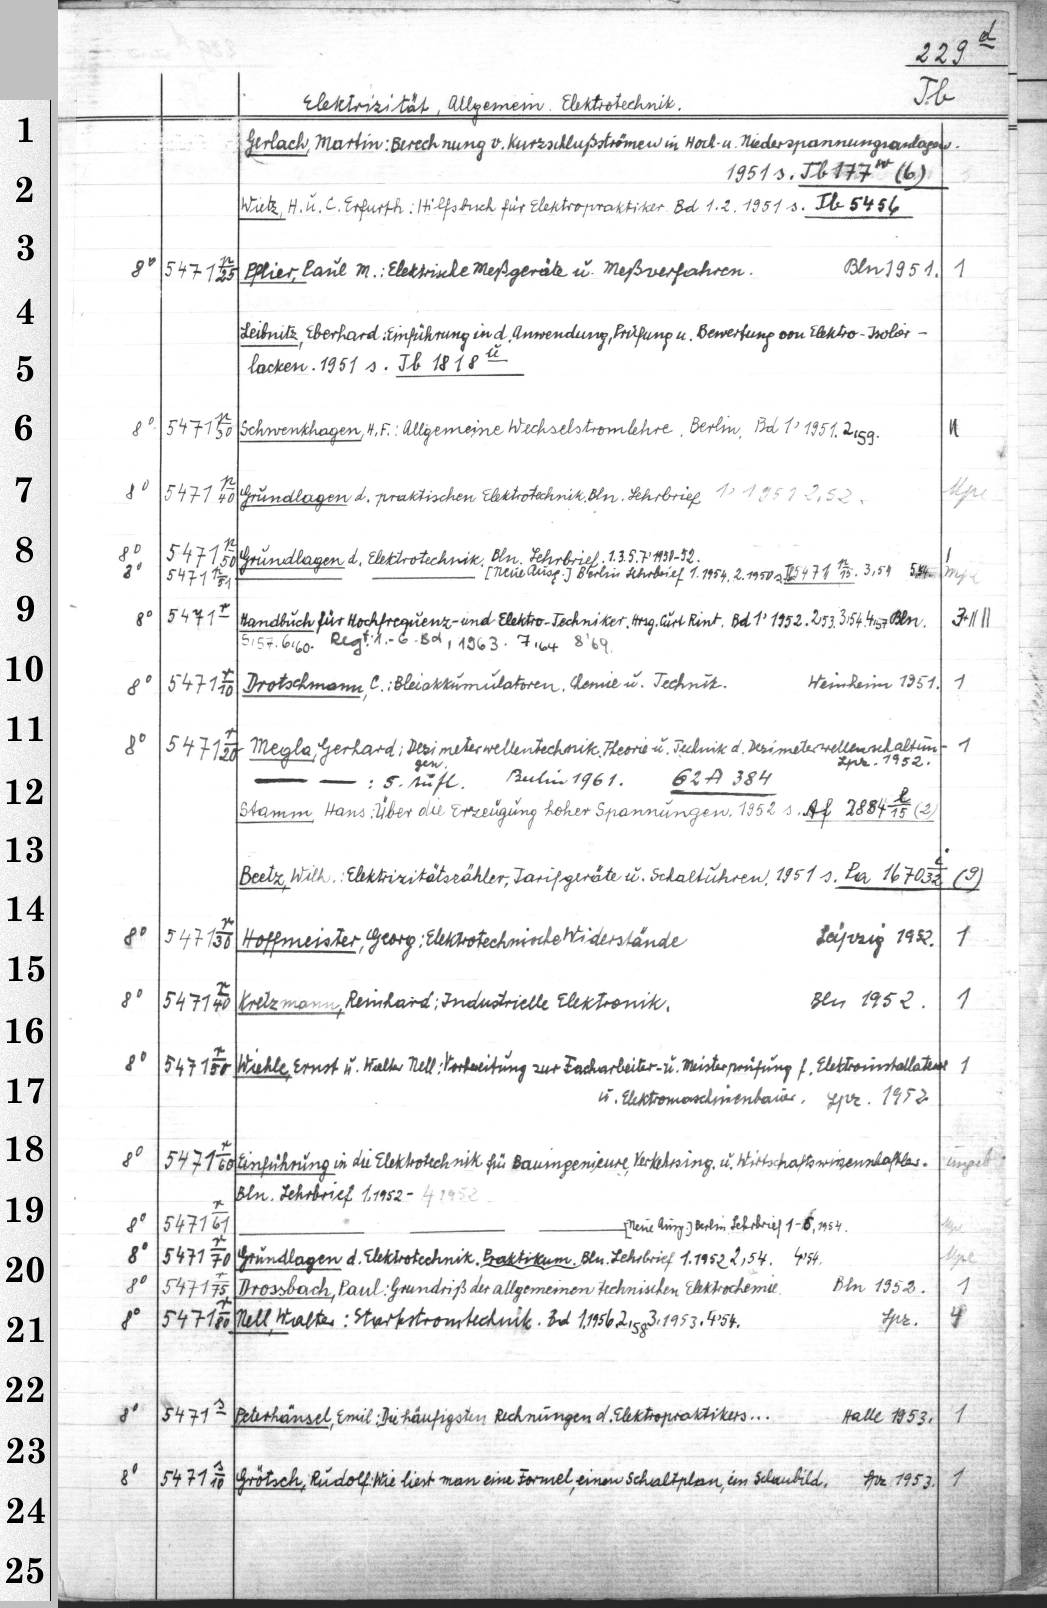 229 d
Tb
Elektrizität, Allgemein. Elektrotechnik.
1
Gerlach, Martin: Berechnung v. Kurzschlußströmen in Hoch- u. Niederspannungsanlagen.
1951 s. Tb 177 w (6)
2
Wietz, H. u. C. Erfurth: Hilfsbuch für Elektropraktiker Bd 1.2. 1951 s. Tb 5456
3
8° 5471 n/25 Pflier, Paul M.: Elektrische Meßgeräte u. Meßverfahren. Bln 1951. 1
4
Leibnitz, Eberhard: Einführung in d. Anwendung, Prüfung u. Bewertung von Elektro-Isolier-
5
lacken. 1951 s. Tb 1818 ü
6
8° 5471 n/30 Schwenkhagen, H.F.: Allgemeine Wechselstromlehre. Berlin. Bd 1, 1951. 2,59. II
7
8° 5471 n/40 Grundlagen d. praktischen Elektrotechnik. Bln. Lehrbrief 1, 1951 2,52.
8
8° 5471 n/50 Grundlagen d. Elektrotechnik. Bln. Lehrbrief. 1.3.5.7, 1950-52. 1
8° 5471 n/51 [Neue Ausg.] Berlin Lehrbrief 1.1954, 2.1950 s. 5471 n/15. 3,54
9
8° 5471 r Handbuch für Hochfrequenz- und Elektro-Techniker. Hrsg. Curt Rint. Bd 1, 1952. 2,53. 3,54. 4,57 Bln.
5,57. 6,60. Reg. 1.-6. Bd, 1963. 7,64 8,69.
10
8° 5471 r/10 Drotschmann, C.: Bleiakkumulatoren. Chemie u. Technik. Weinheim 1951. 1
11
8° 5471 r/20 Megla, Gerhard: Dezimeterwellentechnik. Theorie u. Technik d. Dezimeterwellenschaltun- 1
gen. Lpz. 1952.
12
— — : 5. Aufl. Berlin 1961. 62 A 384
Stamm, Hans: Über die Erzeugung hoher Spannungen. 1952 s. Af 2884 l/15 (2)
13
Beetz, Wilh.: Elektrizitätszähler, Tarifgeräte u. Schaltuhren. 1951 s. Pa 1670 i/32 (9)
14
8° 5471 r/30 Hoffmeister, Georg: Elektrotechnische Widerstände Leipzig 1952. 1
15
8° 5471 r/40 Kretzmann, Reinhard: Industrielle Elektronik. Bln 1952. 1
16
8° 5471 r/50 Wiehle, Ernst u. Walter Nell: Vorbereitung zur Facharbeiter- u. Meisterprüfung f. Elektroinstallateure 1
17
u. Elektromaschinenbauer. Lpz. 1952
18
8° 5471 r/60 Einführung in die Elektrotechnik für Bauingenieure, Verkehrsing. u. Wirtschaftswissenschaftler.
Bln. Lehrbrief 1.1952- 4 1952
19
8° 5471 r/61 [Neue Ausg.] Berlin Lehrbrief 1-6, 1954.
20
8° 5471 r/70 Grundlagen d. Elektrotechnik. Praktikum. Bln. Lehrbrief 1.1952 2,54. 4,54.
8° 5471 r/75 Drossbach, Paul: Grundriß der allgemeinen technischen Elektrochemie. Bln 1952. 1
21
8° 5471 r/80 Nell, Walter: Starkstromtechnik. Bd 1,1956 2,58 3,1953. 4,54. Lpz. 4
22
8° 5471 s Peterhänsel, Emil: Die häufigsten Rechnungen d. Elektropraktikers... Halle 1953. 1
23
8° 5471 s/10 Grötsch, Rudolf: Wie liest man eine Formel, einen Schaltplan, ein Schaubild. Lpz 1953. 1
24
25